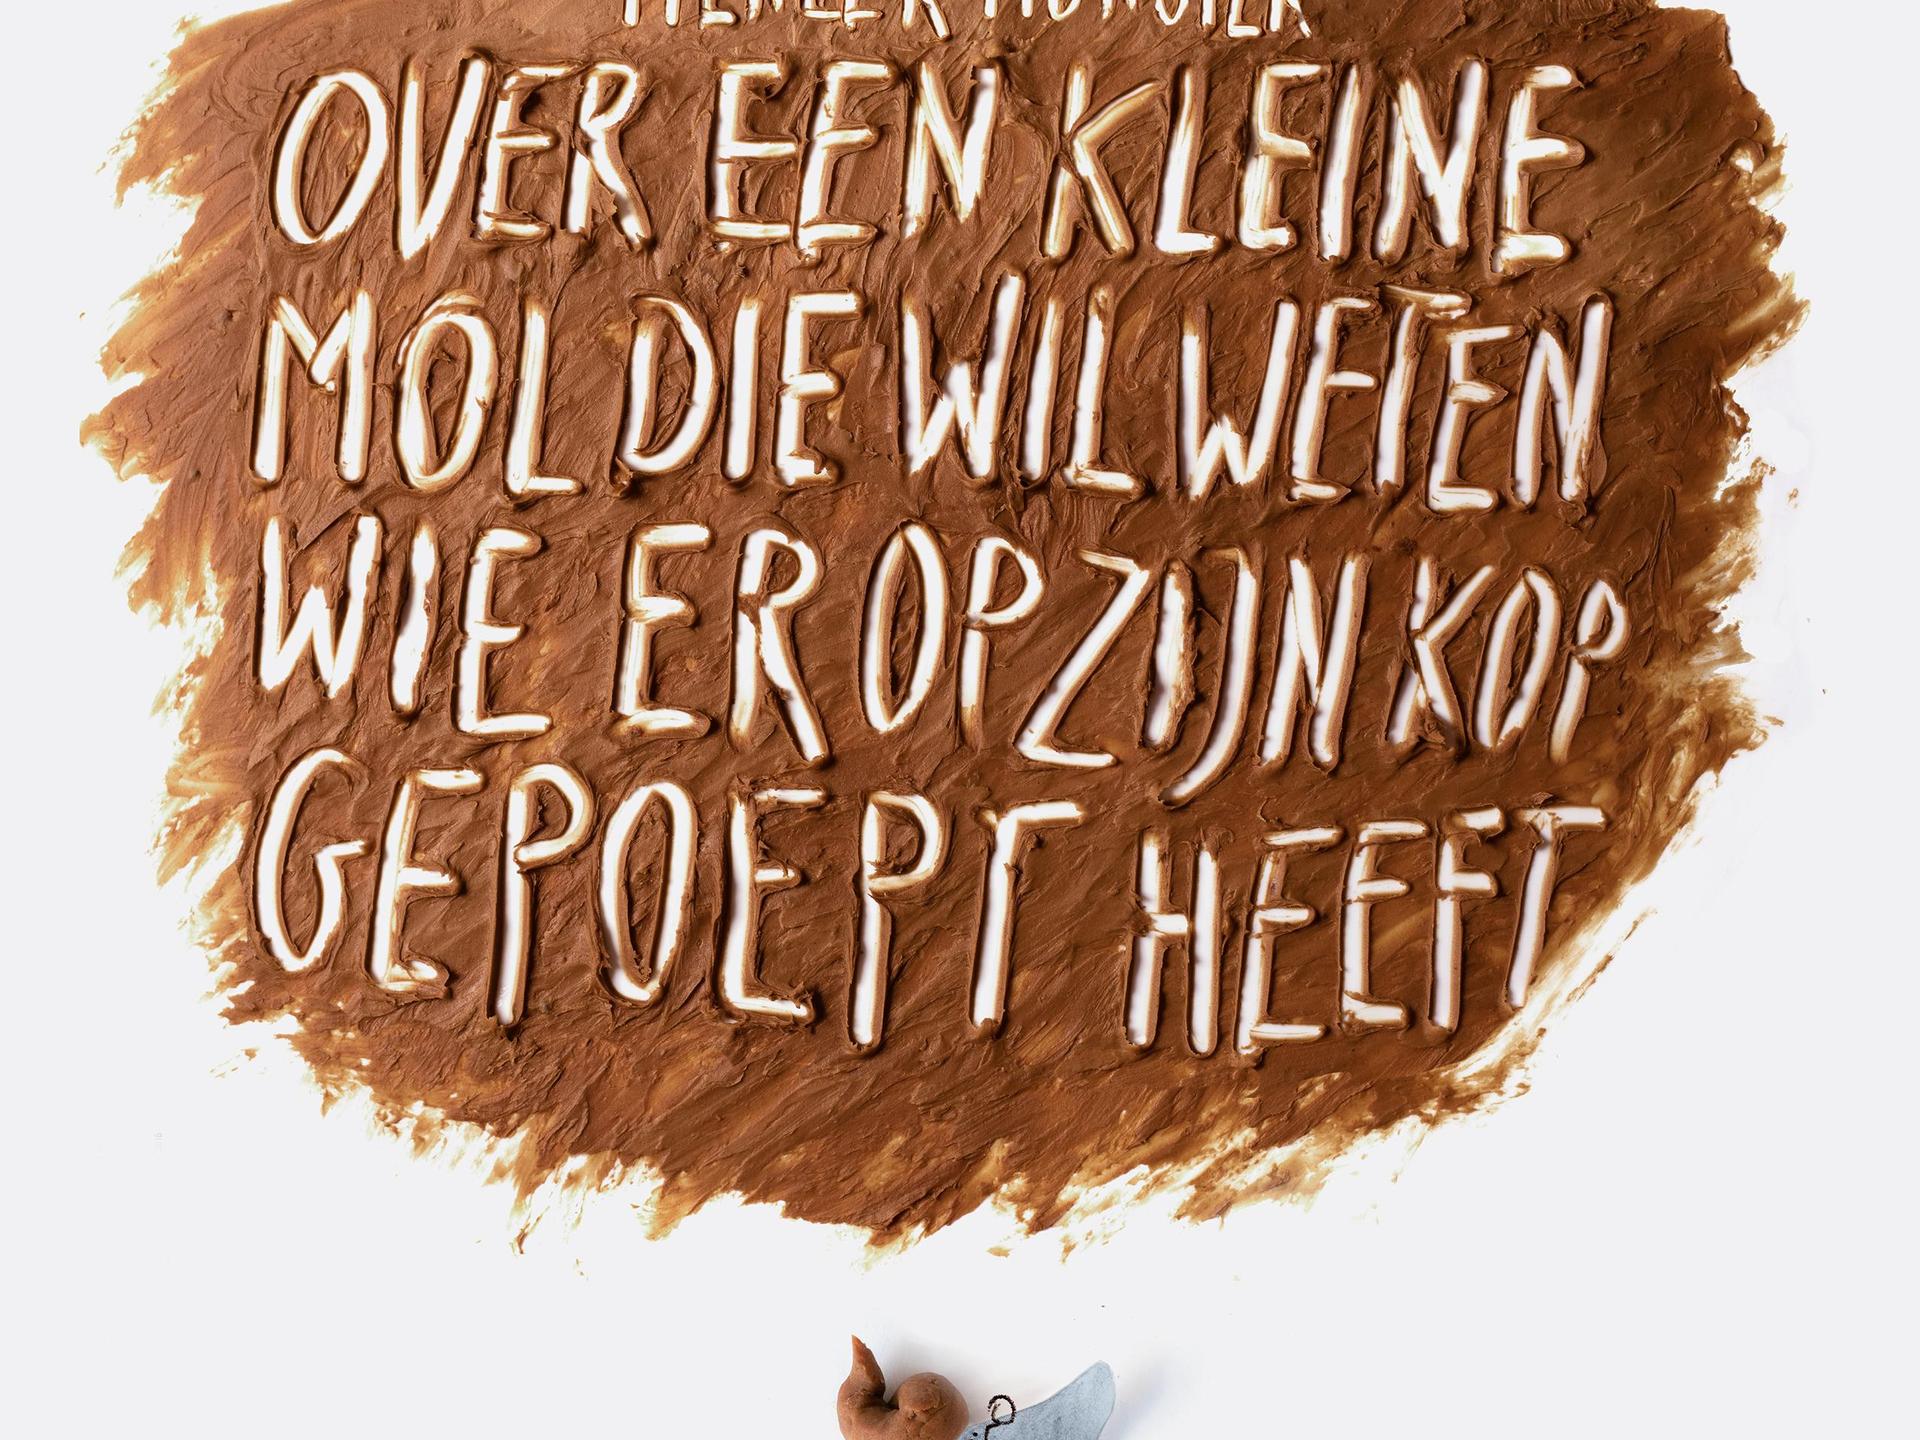 MENEER MONSTER
OVER EEN KLEINE
MOL DIE WIL WETEN
WIE ER OP ZIJN KOP
GEPOEPT HEEFT